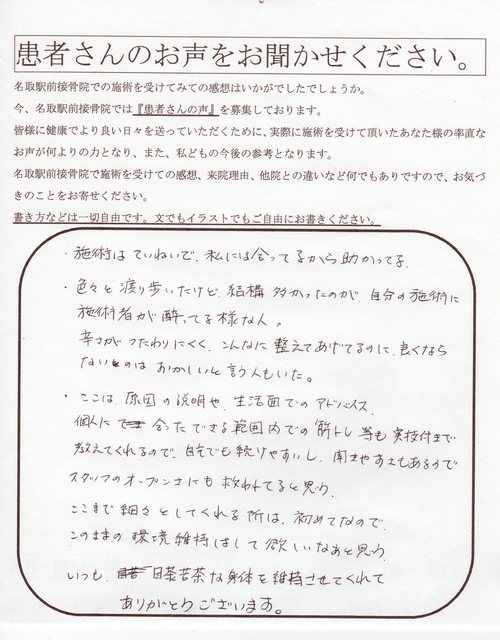 患者さんのお声をお聞かせください。
名取駅前接骨院での施術を受けてみての感想はいかがでしたでしょうか。
今、名取駅前接骨院では『患者さんの声』を募集しております。
皆様に健康でより良い日々を送っていただくために、実際に施術を受けて頂いたあなた様の率直な
お声が何よりの力となり、また、私どもの今後の参考となります。
名取駅前接骨院で施術を受けての感想、来院理由、他院との違いなど何でもありですので、お気づ
きのことをお寄せください。
書き方などは一切自由です。文でもイラストでもご自由にお書きください。
・施術はていねいで、私には合ってるから助かってる。
・色々と渡り歩いたけど、結構多かったのが、自分の施術に
施術者が酔ってる様な人。
辛さがつたわりにくく、こんなに整えてあげてるのに、良くなら
ないのはおかしいと言う人もいた。
・ここは、原因の説明や、生活面でのアドバイス、
個人に合ったできる範囲内での筋トレ等も実技付きで
教えてくれるので、自宅でも続けやすいし、聞きやすさもあるので
スタッフのオープンさにも救われてると思う。
ここまで細々としてくれる所は、初めてなので、
このままの環境維持はして欲しいなあと思う。
いつも、目茶苦茶な身体を維持させてくれて
ありがとうございます。